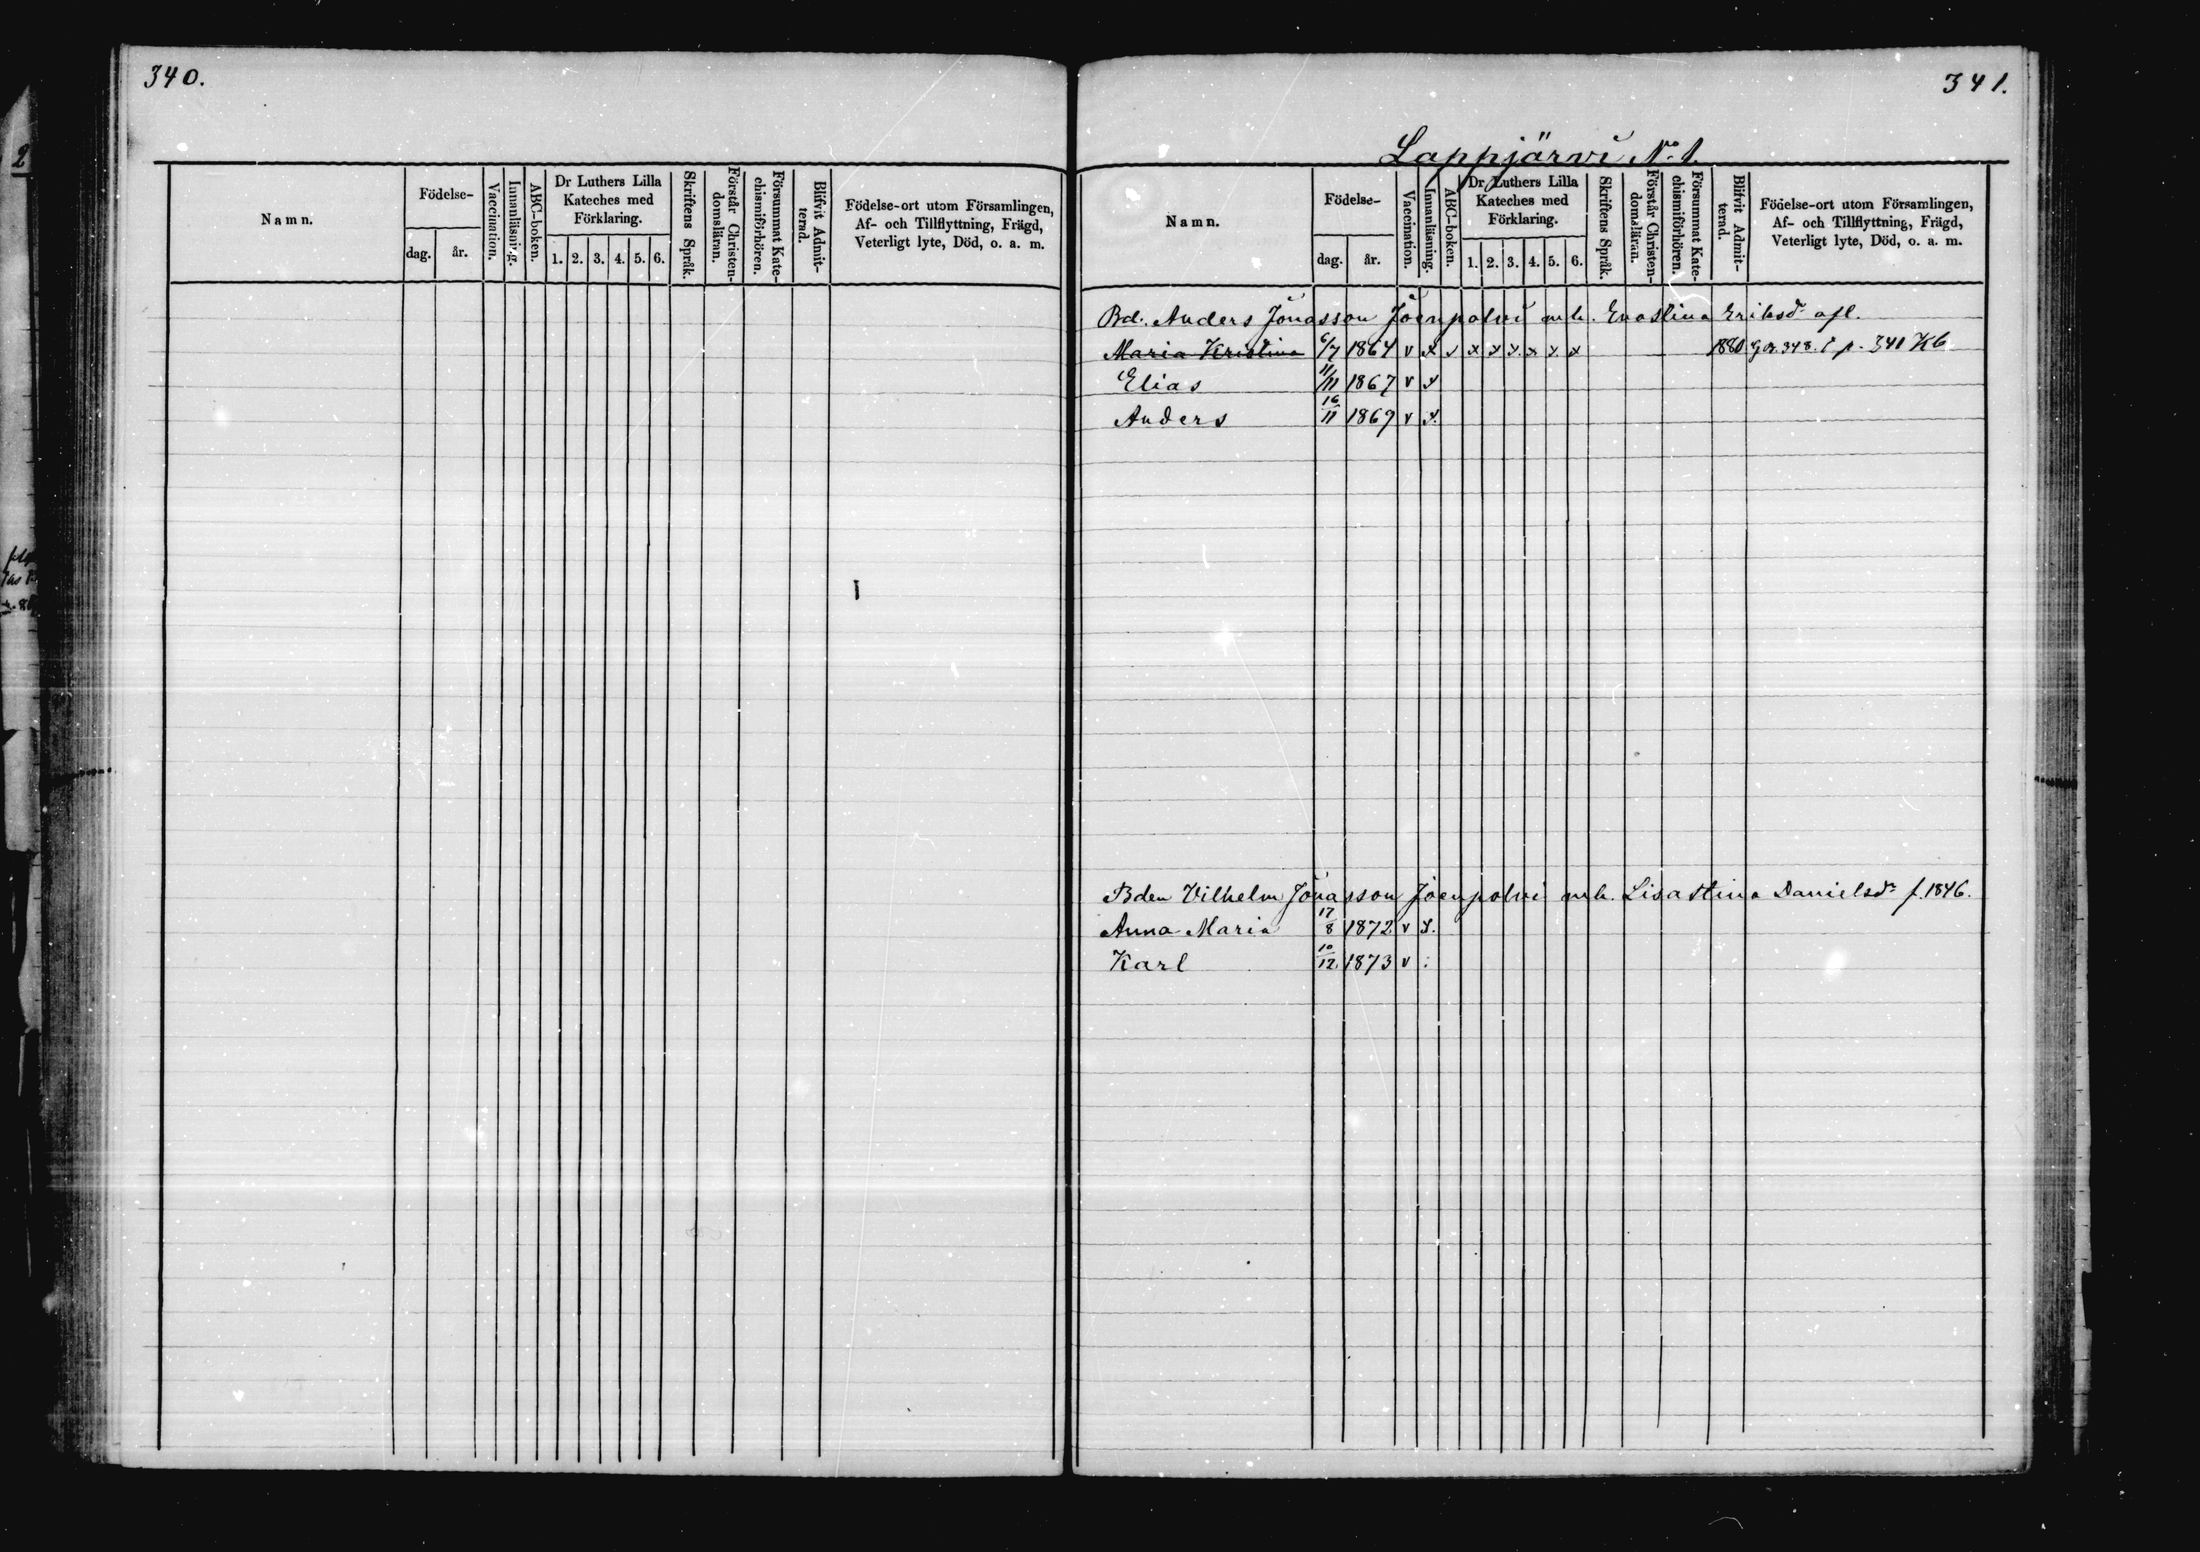 340.
Namn.
Födelse-
dag. år.
Vaccination.
Innanläsning.
ABC-boken.
Dr Luthers Lilla
Kateches med
Förklaring.
1. 2. 3. 4. 5. 6.
Skriftens Språk.
Förstår Christen-
domsläran.
Försummat Kate-
chismiförhören.
Blifvit Admit-
terad.
Födelse-ort utom Församlingen,
Af- och Tillflyttning, Frägd,
Veterligt lyte, Död, o. a. m.
341.
Lappjärvi No 1.
Namn.
Födelse-
dag. år.
Vaccination.
Innanläsning.
ABC-boken.
Dr Luthers Lilla
Kateches med
Förklaring.
1. 2. 3. 4. 5. 6.
Skriftens Språk.
Förstår Christen-
domsläran.
Försummat Kate-
chismiförhören.
Blifvit Admit-
terad.
Födelse-ort utom Församlingen,
Af- och Tillflyttning, Frägd,
Veterligt lyte, Död, o. a. m.
Bd. Anders Jonasson Joenpolvi m.h. Evastina Eriksdr afl.
Maria Kristina 6/7 1864 v x v x x x x x x 1880 348. p. 341 Kb
Elias 11/11 1867 v x
Anders 16/11 1869 v x.
Bden Vilhelm Jonasson Joenpolvi m.h. Lisastina Danielsdr f. 1846.
Anna Maria 17/8 1872 v x.
Karl 10/12. 1873 v :